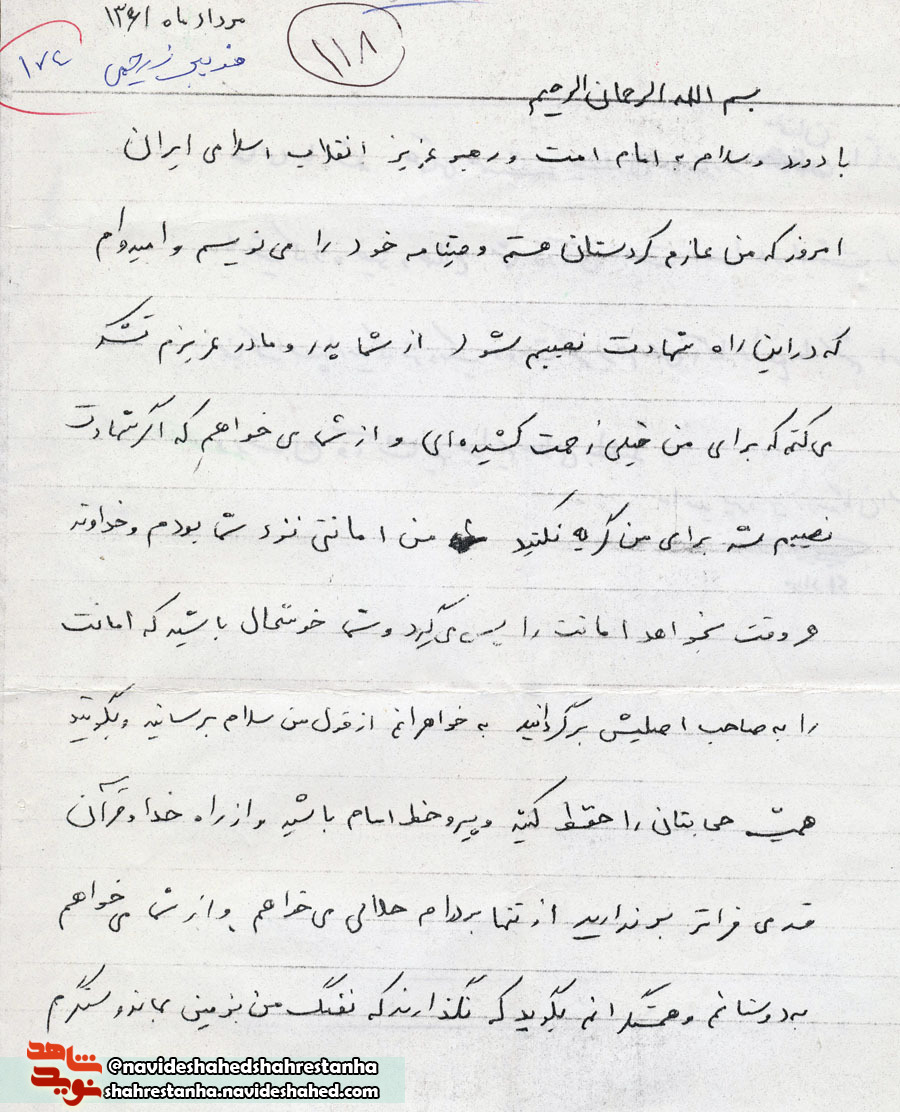 مرداد ماه ۱۳۶۱
۱۱۸
۱۷۴
بسم الله الرحمان الرحیم
با درود و سلام به امام امت و رهبر عزیز انقلاب اسلامی ایران
امروز که من عازم کردستان هستم وصیتنامه خود را می نویسم و امیدوام
که در این راه شهادت نصیبم شود از شما پدر و مادر عزیزم تشکر
می کنم که برای من خیلی زحمت کشیده ای و از شما می خواهم که اگر شهادت
نصیبم شد برای من گریه نکنید من امانتی نزد شما بودم و خداوند
هر وقت بخواهد امانت را پس می گیرد و شما خوشحال باشید که امانت
را به صاحب اصلیش برگردانید به خواهرانم از قول من سلام برسانید و بگویید
همیشه حجابتان را حفظ کنید و پیرو خط امام باشید و از راه خدا و قرآن
قدمی فراتر برندارید از تنها بردارم حلالی می خواهم و از شما می خواهم
به دوستانم و همسنگرانم بگویید که نگذارند که تفنگ من بزمینی بماند و سنگرم
شاهد
نوید
@navideshahedshahrestanha
shahrestanha.navideshahed.com